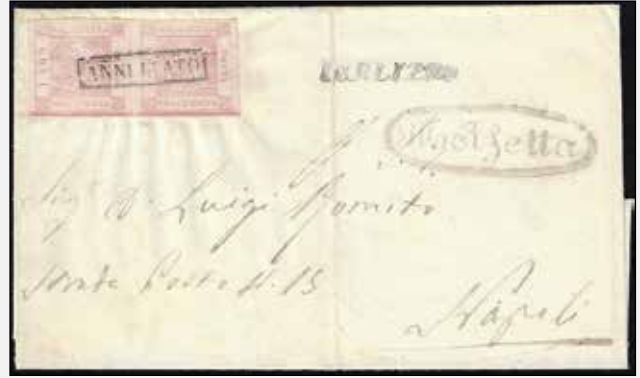 ANNULLATO
Molfetta
Sig. D. Luigi
Strada Porto N. 15
Napoli